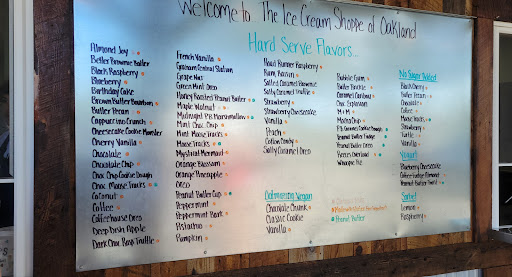 Welcome to The Ice Cream Shoppe of Oakland
Hard Serve Flavors...
Almond Joy
Better Brownie Batter
Black Raspberry
Blueberry
Birthday Cake
Brown Butter Bourbon
Butter Pecan
Cappuccino Crunch
Cheesecake Cookie Monster
Cherry Vanilla
Chocolate
Chocolate Chip
Choc Chip Cookie Dough
Choc Moose Tracks
Coconut
Coffee
Coffeehouse Oreo
Deep Dish Apple
Dark Choc Rasp Truffle
French Vanilla
Graham Central Station
Grape Nut
Green Mint Oreo
Honey Roasted Peanut Butter
Maple Walnut
Midnight P.B. Marshmallow
Mint Choc Chip
Mint Moose Tracks
Moose Tracks
Mystical Mermaid
Orange Blossom
Orange Pineapple
Oreo
Peanut Butter Cup
Peppermint
Peppermint Bark
Pistachio
Pumpkin
Road Runner Raspberry
Rum Raisin
Salted Caramel Brownie
Salty Caramel Truffle
Strawberry
Strawberry Cheesecake
Vanilla
Peach
Cotton Candy
Salty Caramel Oreo
Oatmazing Vegan
Chocolate Chunk
Classic Cookie
Vanilla
Bubble Gum
Butter Brickle
Caramel Coconut
Choc Explosion
M+M
Mocha Chip
P.B. Caramel Cookie Dough
Peanut Butter Fudge
Peanut Butter Oreo
Reeses Overload
Whoopie Pie
Peanut Butter
No Sugar Added
Black Cherry
Butter Pecan
Chocolate
Coffee
Moose Tracks
Strawberry
Turtle
Vanilla
Yogurt
Blueberry Cheesecake
Coffee Fudge Almond
Peanut Butter Twirl
Sorbet
Lemon
Raspberry